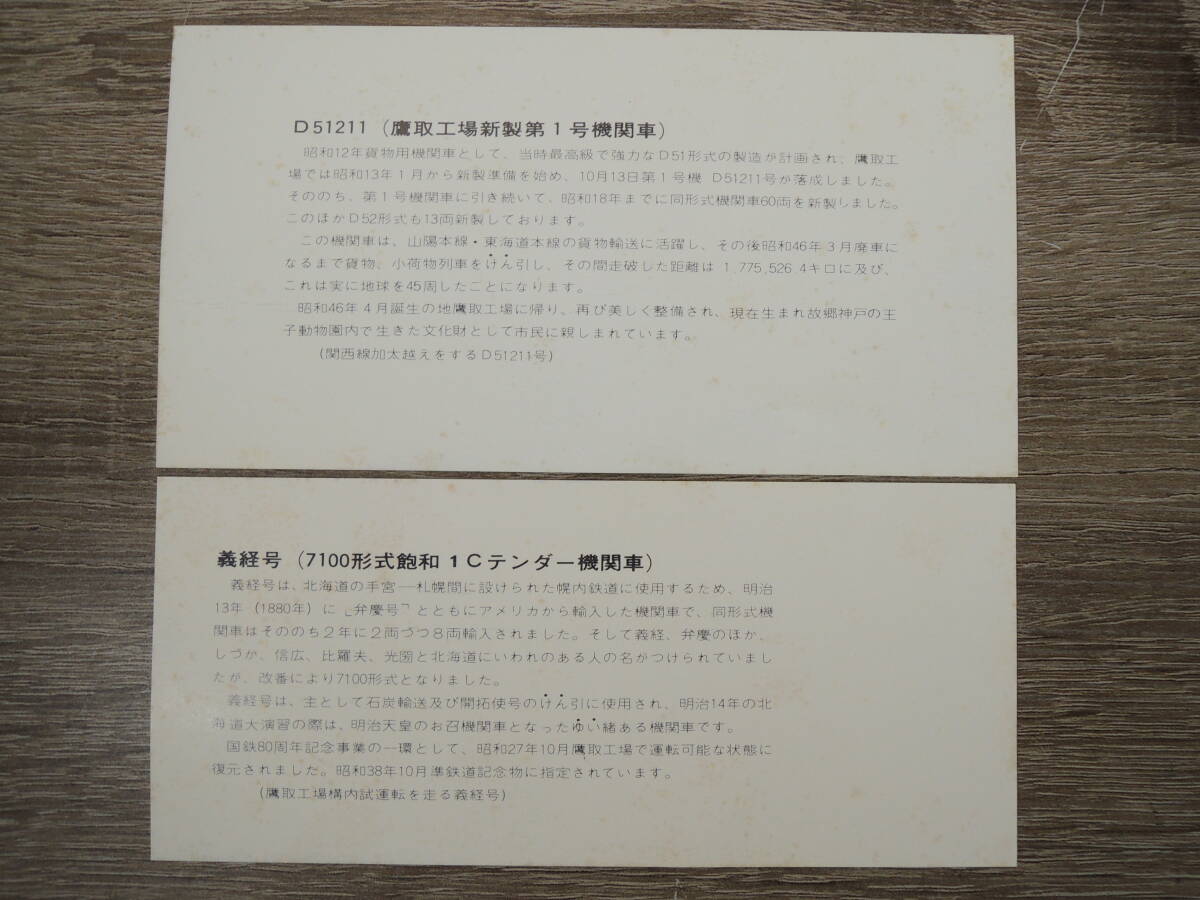 D51211（鷹取工場新製第1号機関車）
昭和12年貨物用機関車として、当時最高級で強力なD51形式の製造が計画され、鷹取工
場では昭和13年1月から新製準備を始め、10月13日第1号機 D51211号が落成しました。
そののち、第1号機関車に引き続いて、昭和18年までに同形式機関車60両を新製しました。
このほかD52形式も13両新製しております。
この機関車は、山陽本線・東海道本線の貨物輸送に活躍し、その後昭和46年3月廃車に
なるまで貨物、小荷物列車をけん引し、その間走破した距離は 1,775,526.4キロに及び、
これは実に地球を45周したことになります。
昭和46年4月誕生の地鷹取工場に帰り、再び美しく整備され、現在生まれ故郷神戸の王
子動物園内で生きた文化財として市民に親しまれています。
（関西線加太越えをするD51211号）
義経号（7100形式飽和1Cテンダー機関車）
義経号は、北海道の手宮―札幌間に設けられた幌内鉄道に使用するため、明治
13年（1880年）に「弁慶号」とともにアメリカから輸入した機関車で、同形式機
関車はそののち2年に2両づつ8両輸入されました。そして義経、弁慶のほか、
しづか、信広、比羅夫、光圀と北海道にいわれのある人の名がつけられていまし
たが、改番により7100形式となりました。
義経号は、主として石炭輸送及び開拓使号のけん引に使用され、明治14年の北
海道大演習の際は、明治天皇のお召機関車となったゆい緒ある機関車です。
国鉄80周年記念事業の一環として、昭和27年10月鷹取工場で運転可能な状態に
復元されました。昭和38年10月準鉄道記念物に指定されています。
（鷹取工場構内試運転を走る義経号）